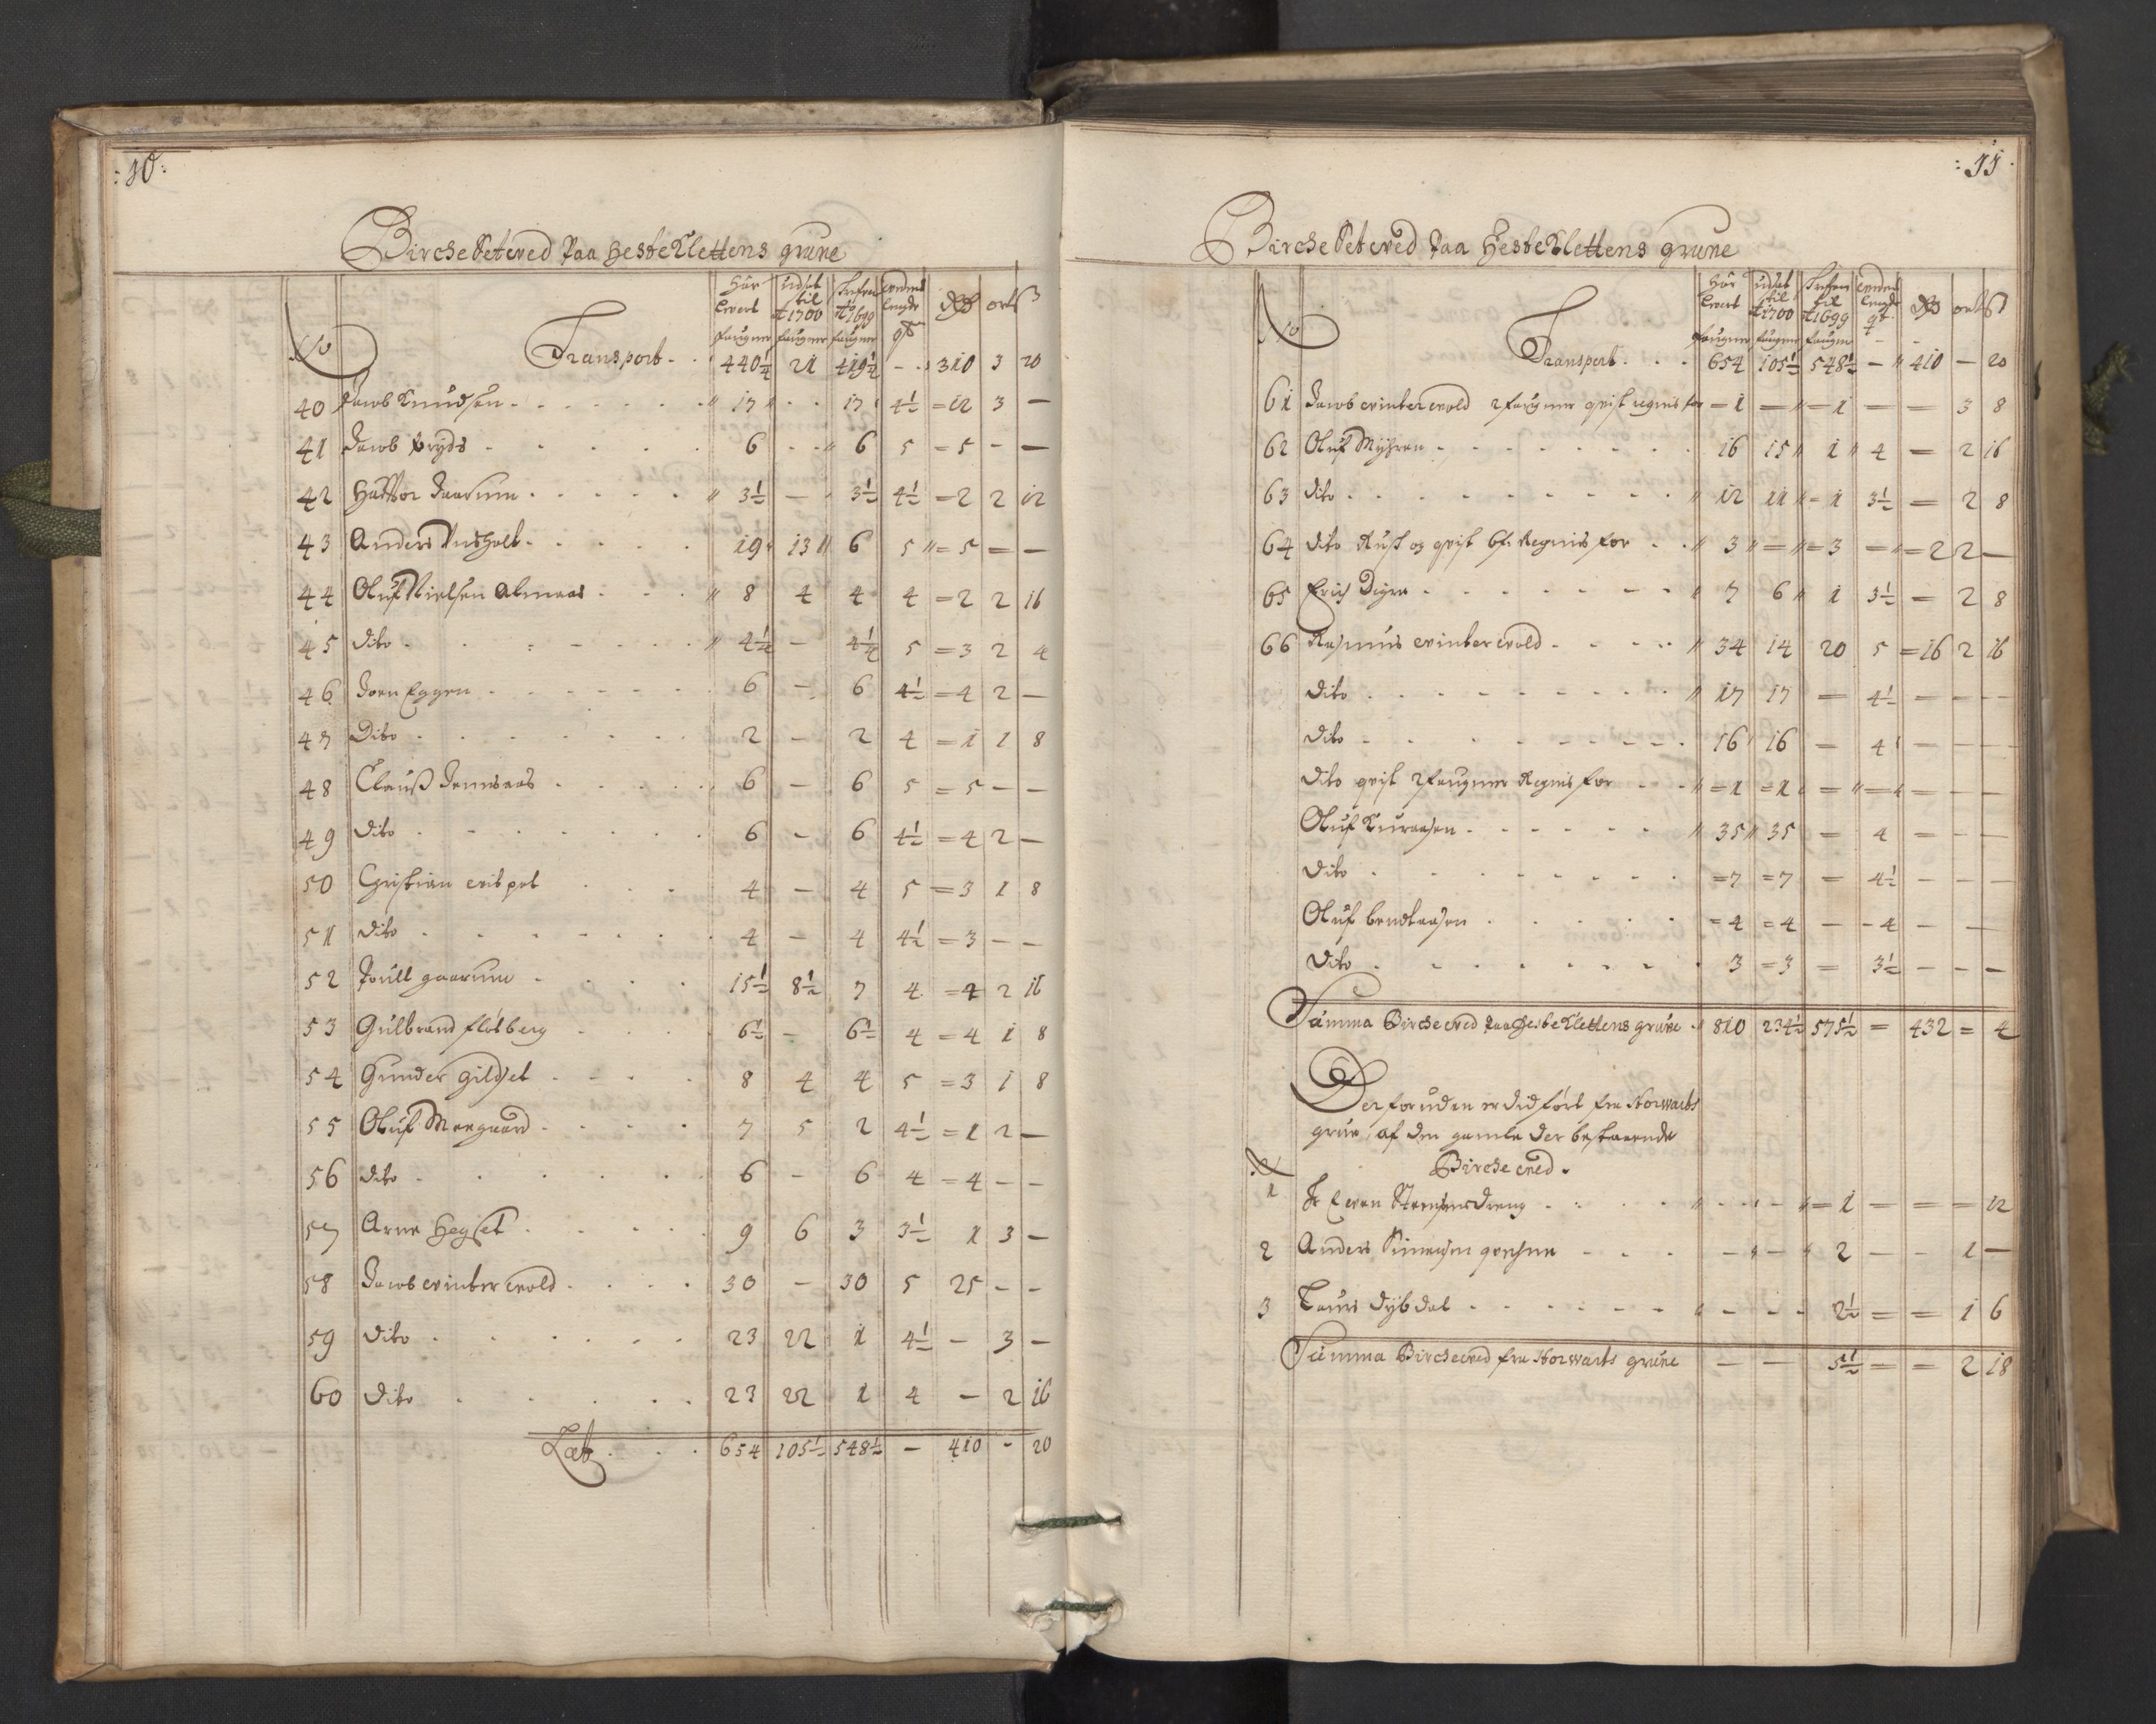 :10:
Birche Setwed paa HesteKlettens gruve
No Har leveret faugner | udsat til Ao 1700 faugner | til Ao 1699 faugner | wedens lengde qt | Rd | ort | ß
Transport - 440¼ 21 419¼ - 310 3 20
40 Jacob Knudsen 17 - 17 4½ 12 3 -
41 Jacob 6 - 6 5 5 - -
42 3½ - 3½ 4½ 2 2 12
43 Anders 19 13 6 5 5 - -
44 Oluf Nielsen Almaas 8 4 4 4 2 2 16
45 dito 4¼ - 4¼ 5 3 2 4
46 Joen Eggen 6 - 6 4½ 4 2 -
47 Dito 2 - 2 4 1 1 8
48 Clauß 6 - 6 5 5 - -
49 dito 6 - 6 4½ 4 2 -
50 Christian 4 - 4 5 3 1 8
51 dito 4 - 4 4½ 3 - -
52 Poull gaarum 15½ 8½ 7 4 4 2 16
53 Gulbrand flotberg 6½ - 6½ 4 4 1 8
54 Gunder gildset 8 4 4 5 3 1 8
55 Oluf Moegaard 7 5 2 4½ 1 2 -
56 dito 6 - 6 4 4 - -
57 Arne Hegset 9 6 3 3½ 1 3 -
58 Jacob winterwold 30 - 30 5 25 - -
59 dito 23 22 1 4½ - 3 -
60 dito 23 22 1 4 - 2 16
Lat 654 105½ 548½ - 410 - 20
:11:
Birche Setwed paa HesteKlettens gruve
No Har leveret faugner | udsat til Ao 1700 faugner | til Ao 1699 faugner | wedens lengde qt | Rd | ort | ß
Transport 654 105½ 548½ - 410 - 20
61 Jacob winterwold 2 faugner qvist regnis for 1 - 1 - - 3 8
62 Oluf Myhren 16 15 1 4 - 2 16
63 dito 12 11 1 3½ - 2 8
64 dito Rusk og qvist 6 f. Regnis for 3 - 3 - 2 2 -
65 Erich Digre 7 6 1 3½ - 2 8
66 Rasmus winterwold 34 14 20 5 16 2 16
dito 17 17 - 4½ - - -
dito 16 16 - 4 - - -
dito qvist 2 faugner Regnis for 1 1 - - - - -
Oluf Kuraasen 35 35 - 4 - - -
dito 7 7 - 4½ - - -
Oluf bendtaasen 4 4 - 4 - - -
dito 3 3 - 3½ - - -
Summa Birchewed paa HesteKlettens gruve 810 234½ 575½ = 432 = 4
Der foruden er didført fra Storwarts
gruve, af den gamle der bestaaende
Birchewed.
No
1 - - 1 - - - 12
2 Anders Simensen - - 2 - - 1 -
3 Laurs dybdal - - 2½ - - 1 6
Summa Birchewed fra Storwarts gruve - - 5½ - - 2 18